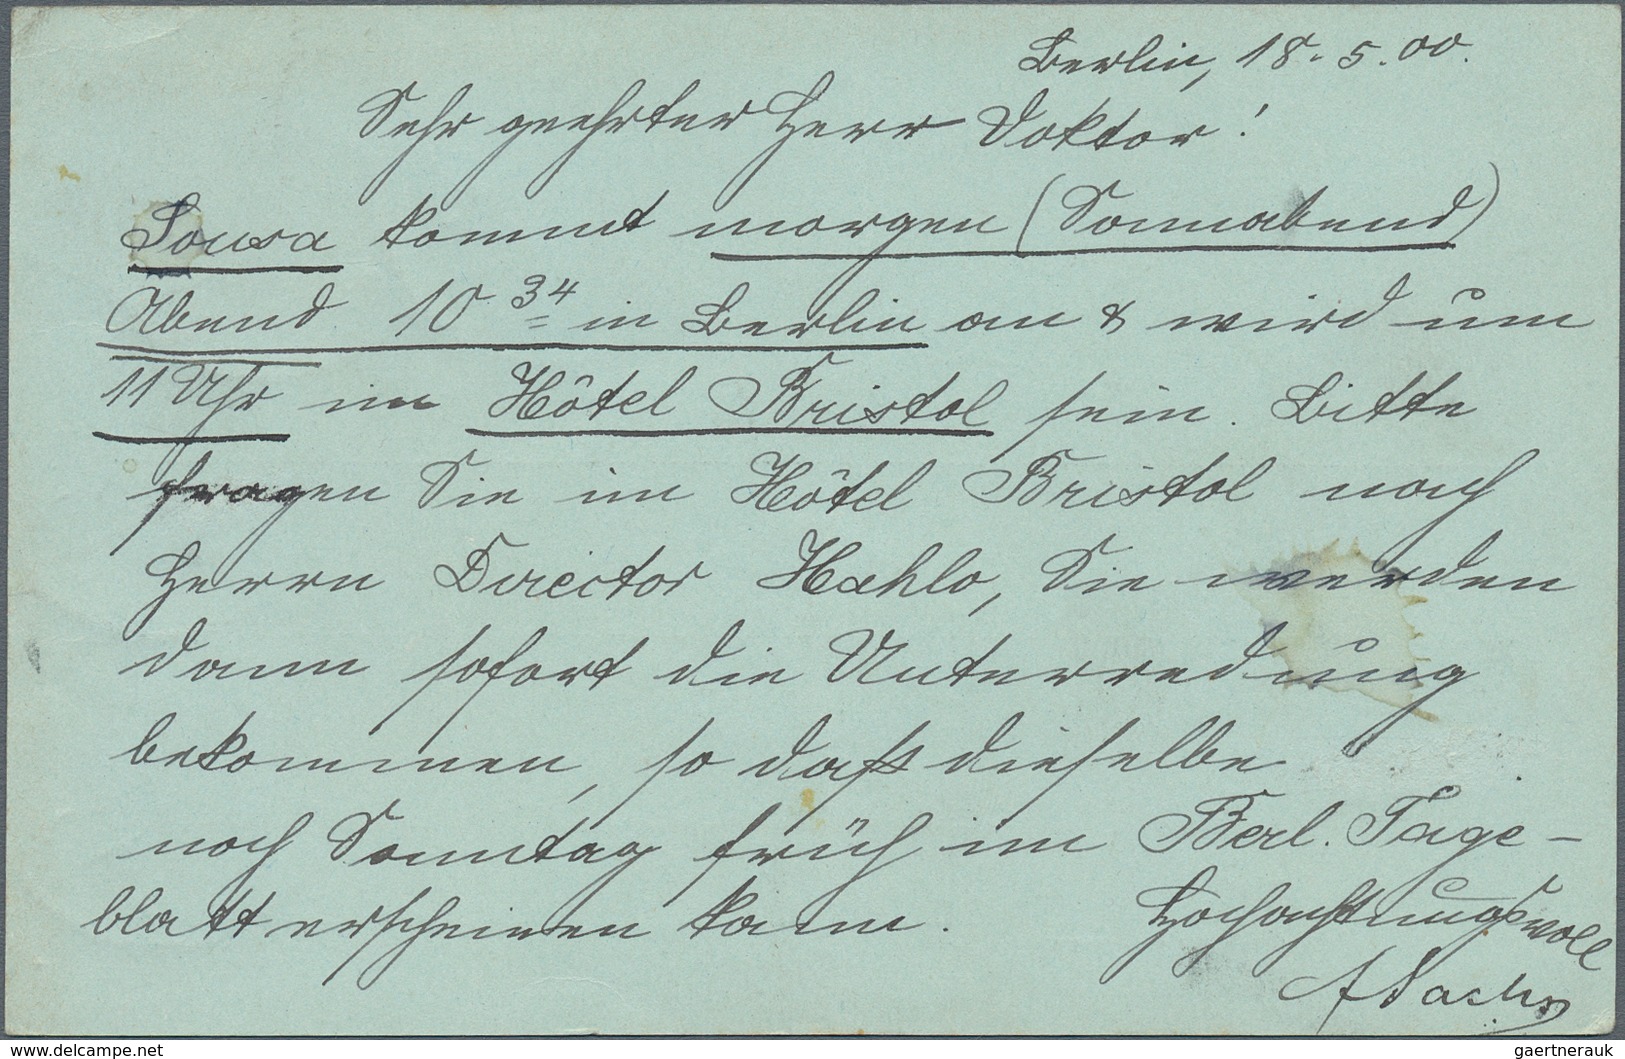 Berlin, 18. 5. 00.
Sehr geehrter Herr Doktor!
Sousa kommt morgen (Sonnabend)
Abend 10 34 in Berlin an & wird um
11 Uhr im Hôtel Bristol sein. Bitte
fragen Sie im Hôtel Bristol nach
Herrn Director Hahlo, Sie werden
dann sofort die Unterredung
bekommen, so daß dieselbe
noch Sonntag früh im Berl. Tage-
blatt erscheinen kann.
Hochachtungsvoll
A Sachs
© www.delcampe.net
gaertnerauk